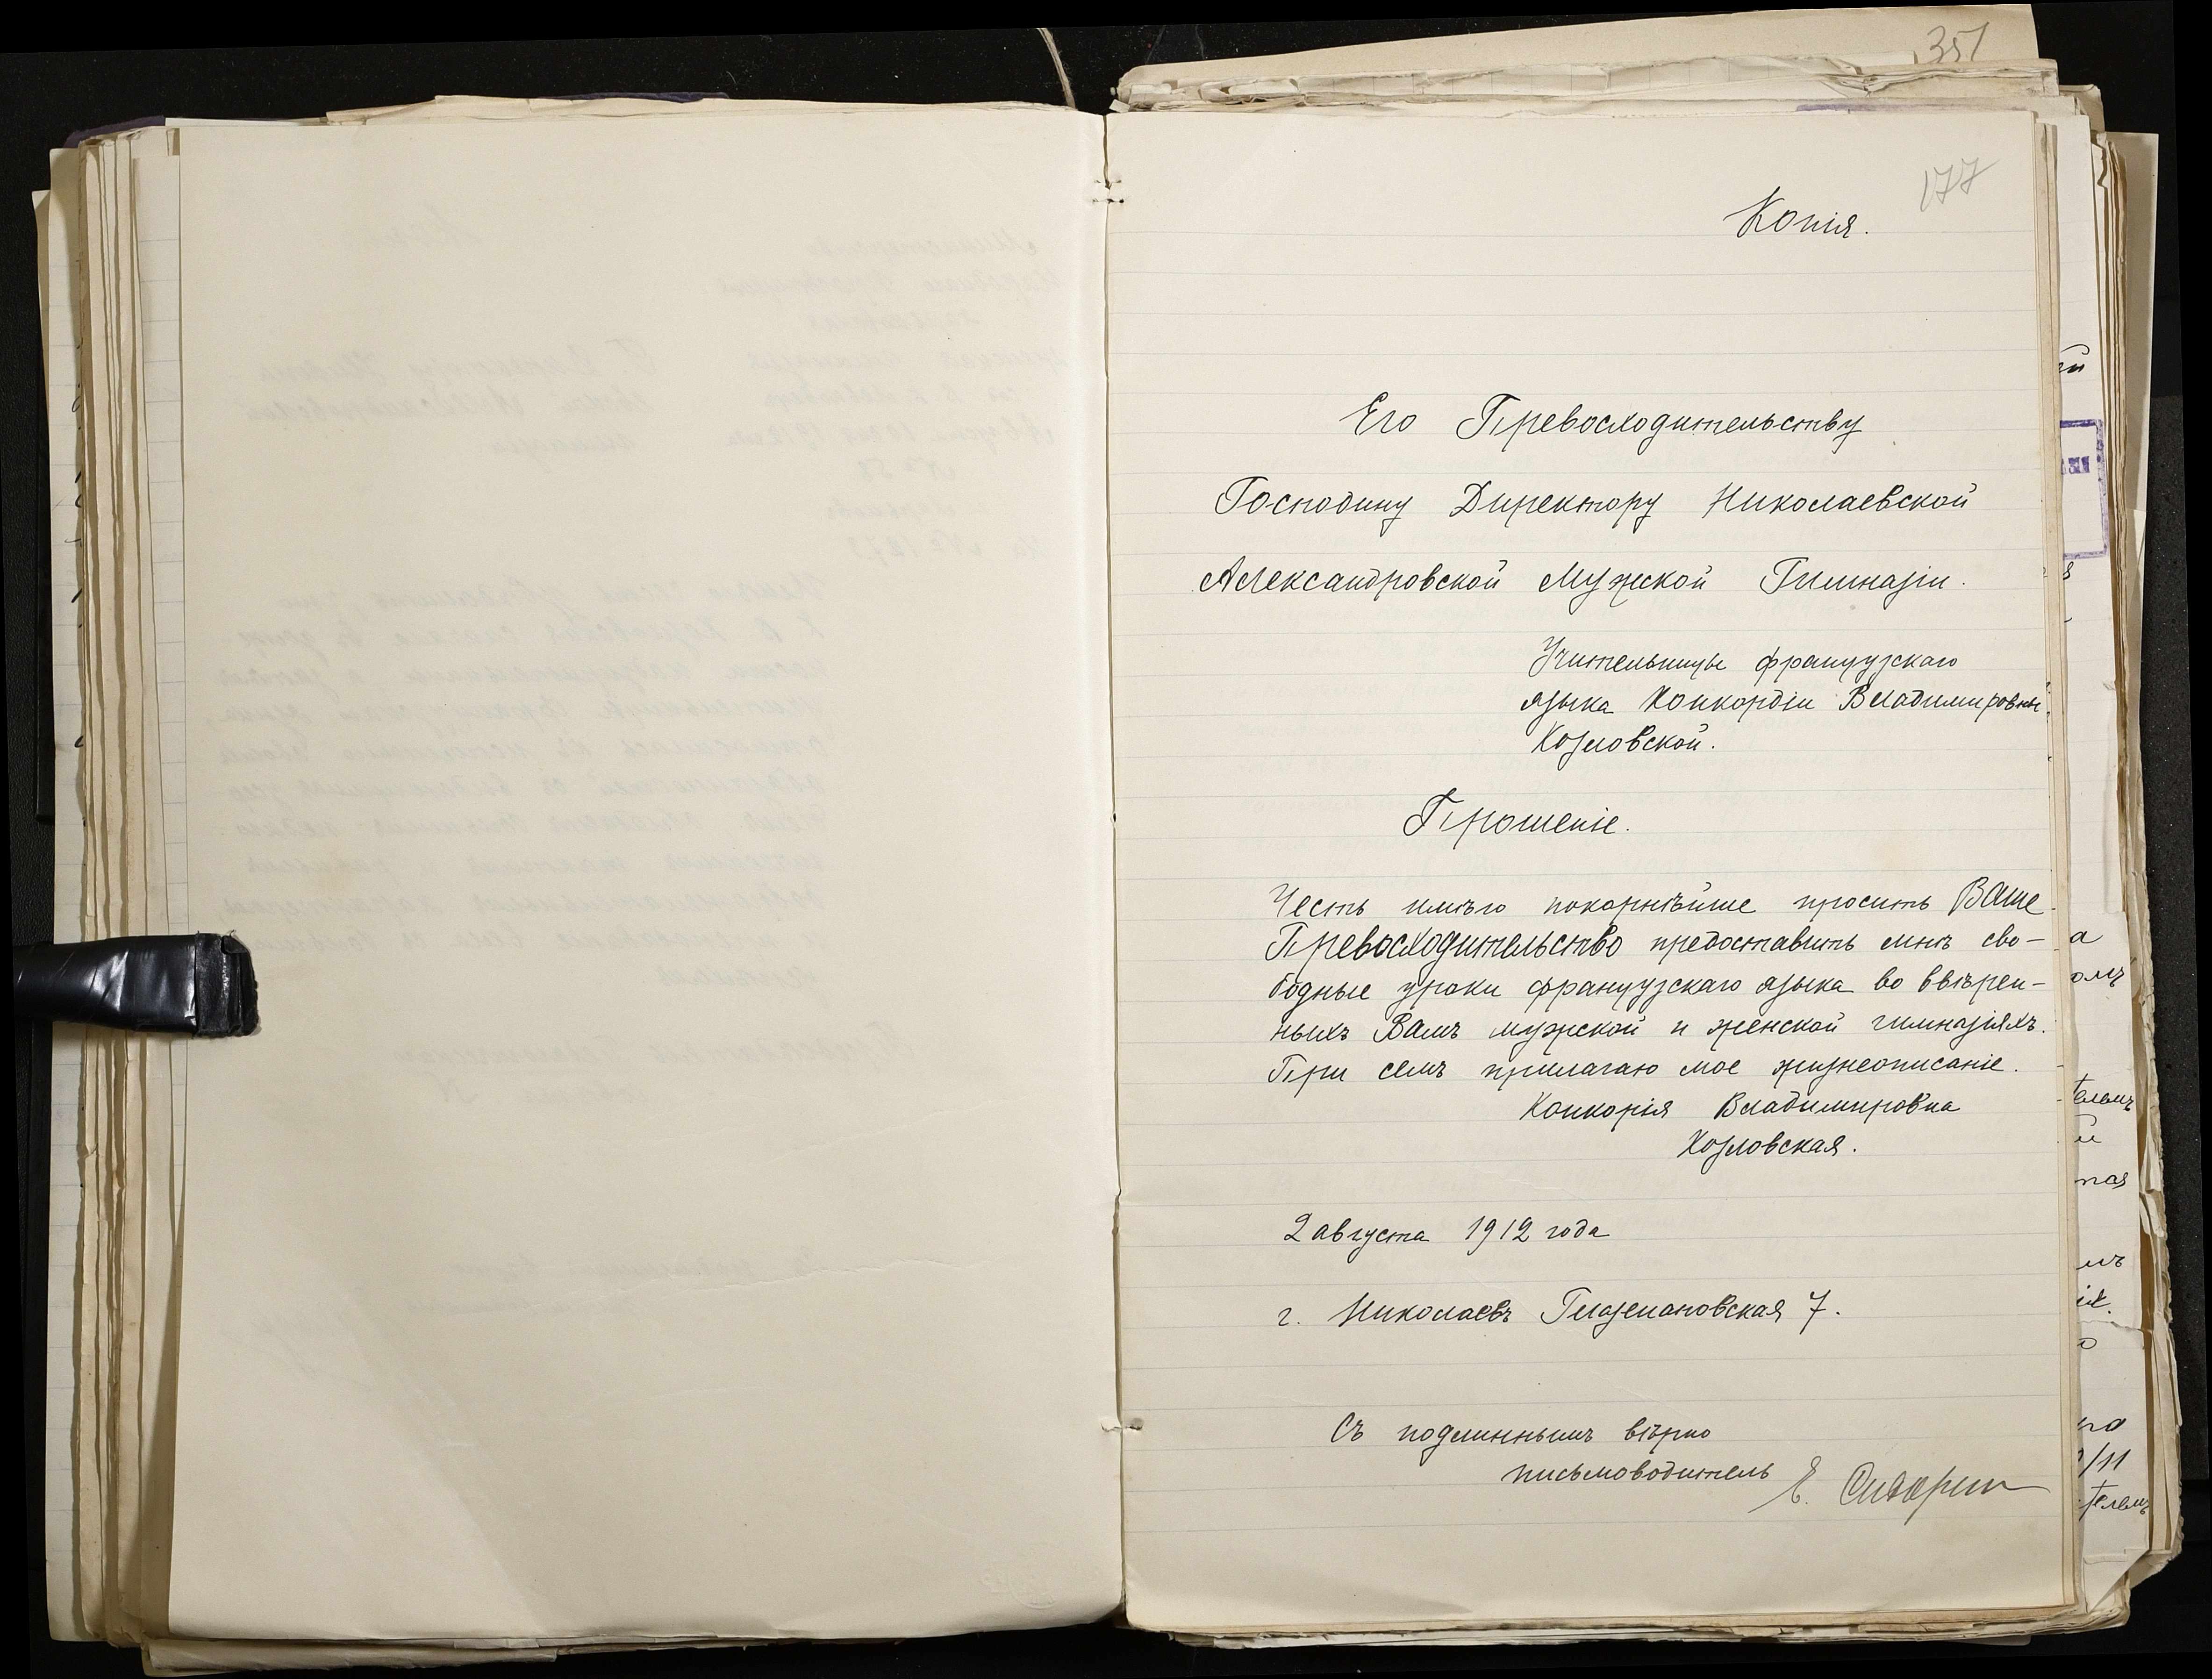 351
177
Копія.
Его Превосходительству
Господину Директору Николаевской
Александровской Мужской Гимназіи.
Учительницы французскаго
языка Конкордіи Владимировны
Козловской.
Прошеніе.
Честь имѣю покорнѣйше просить Ваше
Превосходительство предоставить мнѣ сво-
бодные уроки французскаго языка во ввѣрен-
ныхъ Вамъ мужской и женской гимназіяхъ.
При семъ прилагаю мое жизнеописаніе.
Конкорія Владимировна
Козловская.
2 августа 1912 года
г. Николаевъ Глазенаповская 7.
Съ подлиннымъ вѣрно
письмоводитель Е.